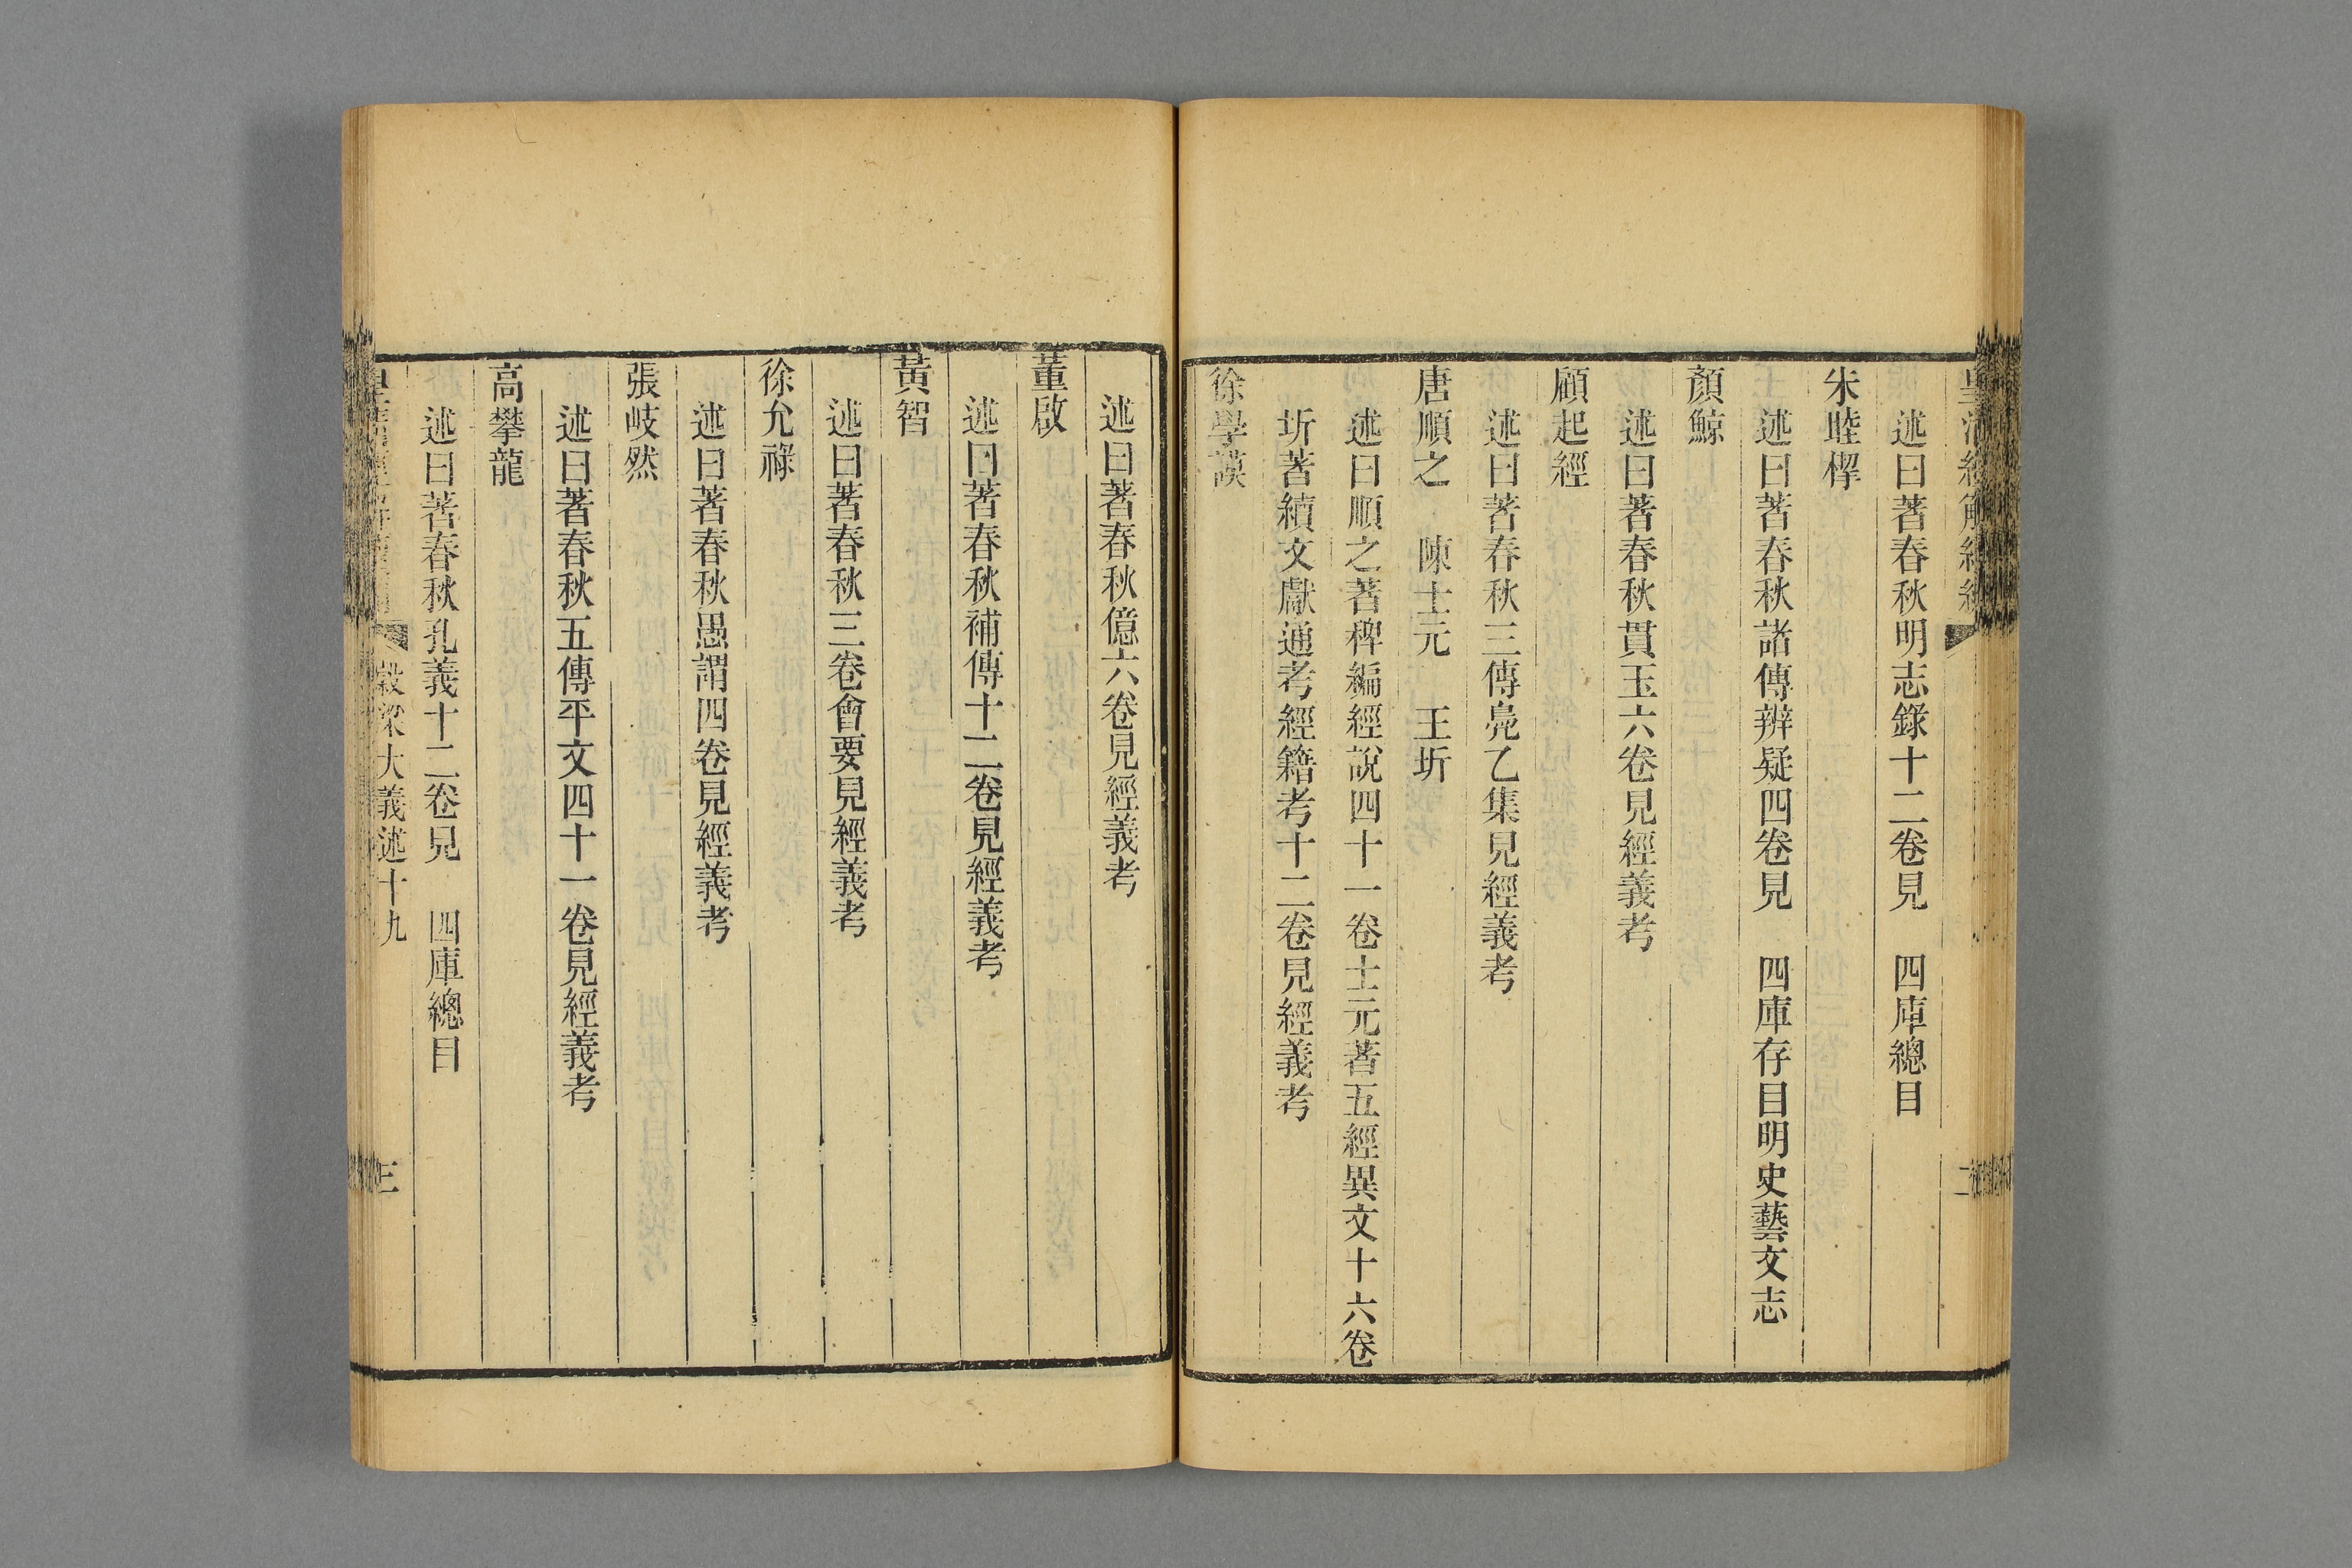 述曰著春秋明志錄十二卷見　四庫總目
朱睦㮮
述曰著春秋諸傳辨疑四卷見　四庫存目明史藝文志
顏鯨
述曰著春秋貫玉六卷見經義考
顧起經
述曰著春秋三傳鳧乙集見經義考
唐順之　陳士元　王圻
述曰順之著稗編經說四十一卷士元著五經異文十六卷
圻著續文獻通考經籍考十二卷見經義考
徐學謨
述曰著春秋億六卷見經義考
董啟
述曰著春秋補傳十二卷見經義考
黃智
述曰著春秋三卷會要見經義考
徐允祿
述曰著春秋愚謂四卷見經義考
張岐然
述曰著春秋五傳平文四十一卷見經義考
高攀龍
述曰著春秋孔義十二卷見　四庫總目
穀梁大義述十九
三